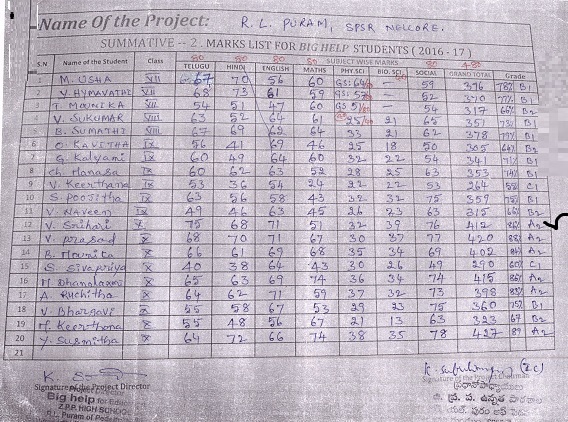 Name Of the Project: R. L. PURAM, SPSR NELLORE.
SUMMATIVE -- 2 . MARKS LIST FOR BIG HELP STUDENTS ( 2016 - 17 )
80 80 80 80 SUBJECT WISE MARKS 80 480
S.N Name of the Student Class TELUGU HINDI ENGLISH MATHS PHY.SCI BIO. SCI SOCIAL GRAND TOTAL Grade
1 M. USHA VII 67 70 56 60 GS: 64 — 59 376 78% B1
2 V. HYMAVATHI VII 68 73 61 59 GS: 57 — 52 370 77% B1
3 T. MOUNIKA VII 54 51 47 60 GS 51 — 54 317 66% B2
4 V. SUKUMAR VIII 63 52 64 61 25 21 65 351 73% B1
5 B. SUMATHI VIII 67 69 62 64 33 21 62 378 79% B1
6 O. KAVITHA IX 56 41 69 46 25 18 50 305 64% B2
7 G. Kalyani IX 60 49 64 60 32 22 54 341 71% B1
8 Ch. Manasa IX 60 62 63 52 28 25 63 353 74% B1
9 V. Keerthana IX 53 36 54 24 22 22 53 264 55% C1
10 S. Poojitha IX 63 56 58 43 32 32 75 359 75% B1
11 V. Naveen IX 49 46 63 45 26 23 63 315 66% B2
12 V. Srihari X 75 68 71 51 32 39 76 412 86% A2
13 V. Prasad X 68 70 71 67 30 37 77 420 88% A2
14 B. Mounica X 66 61 69 68 35 34 69 402 84% A2
15 S. Sivapriya X 40 38 64 43 30 26 49 290 60% C1
16 M. Dhanalaxmi X 65 63 69 74 36 34 74 415 86% A2
17 A. Ruchitha X 64 62 71 59 37 32 73 398 83% A2
18 V. Bhargavi X 55 58 67 53 29 23 75 360 75% B1
19 M. Keerthana X 55 48 56 67 21 13 63 323 67 B2
20 Y. Susmitha X 64 72 66 74 38 35 78 427 89 A2
21
Signature of the Project Director
Signature of the Chairman
Big help for Edu
Z.P.P. HIGH SCHOOL
Puram of